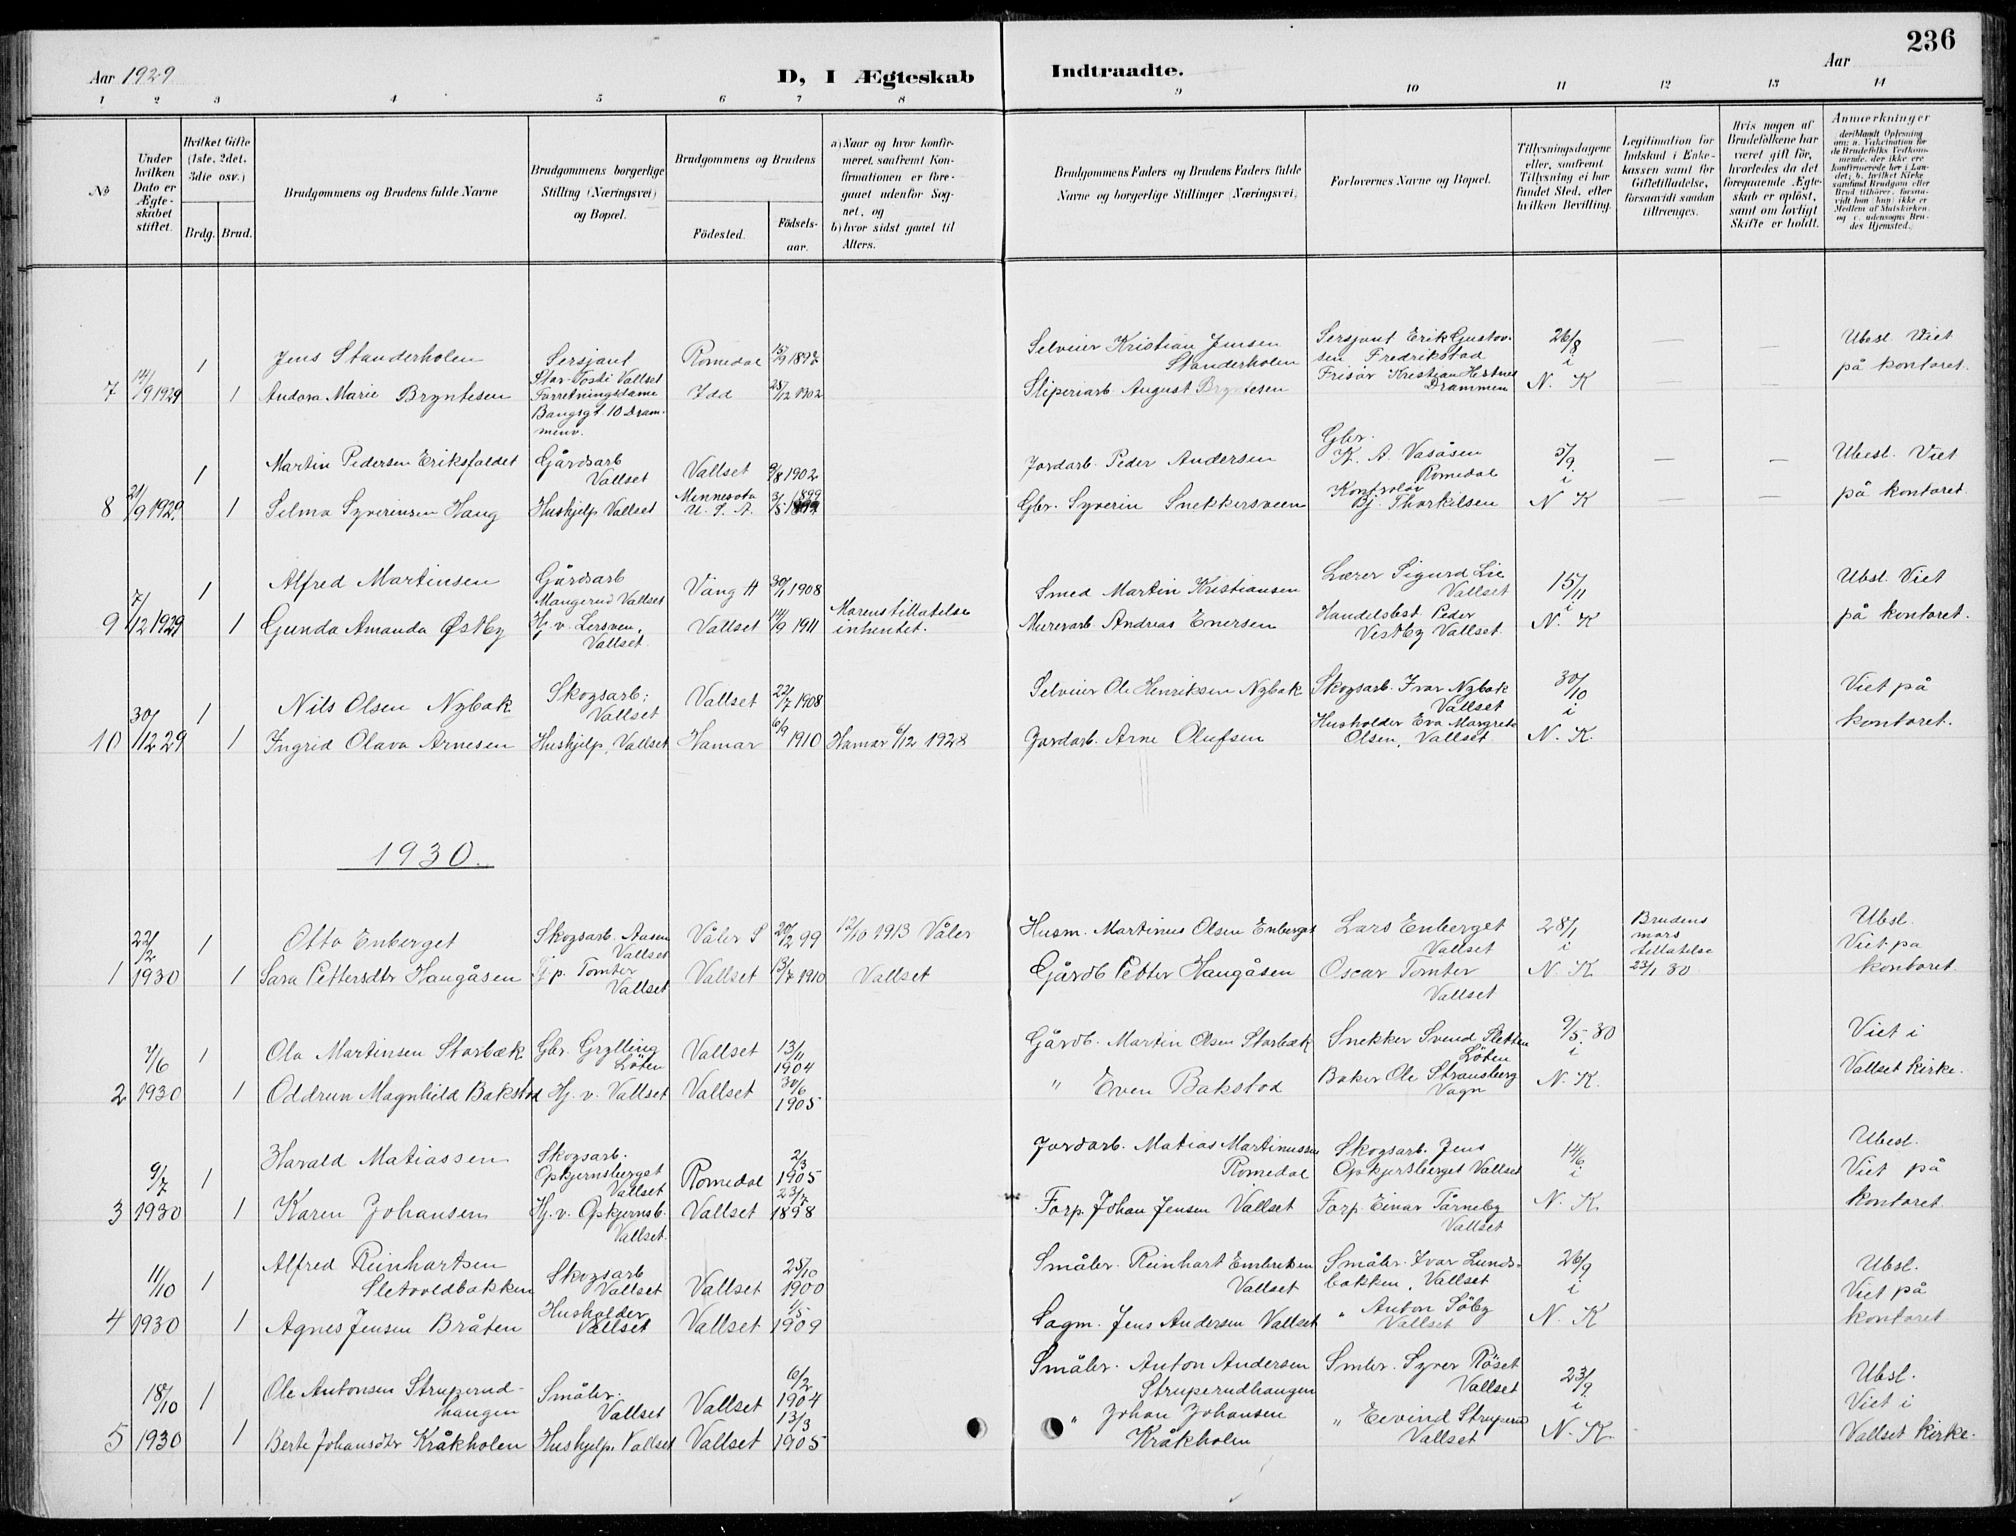 236
Aar 1929
D, I Ægteskab
Indtraadte.
Aar
1 2 3 4 5 6 7 8 9 10 11 12 13 14
No
Under hvilken Dato er Ægteskabet stiftet.
Hvilket Gifte (1ste, 2det, 3die osv.)
Brdg. Brud.
Brudgommens og Brudens fulde Navne
Brudgommens borgerlige Stilling (Næringsvei) og Bopæl.
Brudgommens og Brudens
Födested.
Födsels-aar.
a) Naar og hvor konfirmeret, saafremt Konfirmationen er foregaaet udenfor Sognet, og
b) hvor sidst gaaet til Alters.
Brudgommens Faders og Brudens Faders fulde Navne og borgerlige Stillinger (Næringsvei)
Forlovernes Navne og Bopæl.
Tillysningsdagene eller, saafremt Tillysning ei har fundet Sted, efter hvilken Bevilling.
Legitimation for Indskud i Enkekassen samt for Giftetilladelse, forsaavidt saadan tiltrænges.
Hvis nogen af Brudefolkene har været gift för, hvorledes da det foregaaende Ægteskab er oplöst, samt om lovligt Skifte er holdt.
Anmærkninger
7 14/9 1929 1 Jens Standerholen Sersjant Stor-Tosti Vallset Romedal 15/9 1897 Selveier Kristian Jensen Standerholen Sersjant Erik Gustovsen Fredrikstad 26/8 i N. K — — Ubsl. Viet på kontoret.
1 Andora Marie Bryntesen Forretningsdame Bangsgt. 10 Drammenv. Idd 28/12 1902 Sliperiarb. August Bryntesen Frisör Kristian Hestnes Drammen — —
8 21/9 1929. 1 Martin Pedersen Eriksfaldet Gårdsarb Vallset Vallset 9/8 1902 Jordarb. Peder Andersen Gbr. K. A. Vasåsen Romedal 5/9. i N K — — Ubesl. Viet på kontoret
1 Selma Syverinsen Haug Hushjelp Vallset Minnesota U. S. A. 3/5 1899 Gbr. Syverin Snekkersveen Kontrolör Bj. Thorkilsen — —
9 7/12 1929 1 Alfred Martinsen Gårdsarb Mangerud Vallset Vang H 30/1 1908 Smed Martin Kristiansen Lærer Sigurd Lie Vallset 15/11 i N. K Ubsl. Viet på kontoret.
1 Gunda Amanda Østby Hj. v. Lersveen, Vallset Vallset 14/9 1911 Morens tillatelse inhentet. Murerarb. Andreas Enersen Handelsbst. Peder Vestby Vallset
10 30/12 29 1 Nils Olsen Nybak Skogsarb: Vallset Vallset 22/7 1908 Selveier Ole Henriksen Nybak Skogsarb. Ivar Nybak Vallset 30/10 i N. K. Viet på kontoret.
1 Ingrid Olava Arnesen Hushjelp, Vallset Hamar 6/9 1910 Hamar 6/12 1928 Jordarb. Arne Olufsen Husholder Eva Margrete Olsen, Vallset
1930.
1 22/2 1930 1 Otto Enberget Skogsarb. Aasen Vallset Våler S 20/12 99 12/10 1913 Våler Husm. Martinus Olsen Enberget Lars Enberget Vallset 28/1 i N. K Brudens mors tillatelse 23/1 30 Ubsl. Viet pa kontoret.
1 Sara Pettersdtr Haugåsen Tj p. Tomter Vallset Vallset 13/7 1910 Vallset Gårdb Petter Haugåsen Oscar Tomter Vallset
2 7/6 1930 1 Ola Martinsen Storbæk Gbr. Grylling Löten Vallset 13/11 1904 Gårdb. Martin Olsen Storbæk Snekker Svend Sletten Löten 9/5. 30 i N. K. Viet i Vallset kirke.
1 Oddrun Magnhild Bakstad Hj. v. Vallset Vallset 30/6 1905 " Even Bakstod Baker Ole Strausberg Vagn
3 9/7 1930 1 Harald Matiassen Skogsarb. Opkjernsberget Vallset Romedal 2/3 1905 Jordarb. Matias Martinussen Romedal Skogsarb. Jens Opskjersberget Vallset 14/6 i N. K. Ubesl. Viet på kontoret
1 Karen Johansen Hj. v. Opkjernsb. Vallset. Vallset 23/7 1898 Forp. Johan Jensen Vallset Forp. Einar Tårneby Vallset
4 11/10 1930 1 Alfred Reinhartsen Sletvoldbakken Skogsarb Vallset Vallset 25/10 1900 Småbr. Reinhart Embreksen Vallset Småbr. Ivar Lundsbakken, Vallset 26/9 i N. K Ubsl. Viet på kontoret
1 Agnes Jensen Bråten Husholder Vallset Vallset 1/5 1909 Sagm. Jens Andersen Vallset " Anton Söby Vallset
5 18/10 1930 1 Ole Antonsen Struperudhaugen Småbr. Vallset Vallset 6/2 1904 Småbr. Anton Andersen Struperudhaugen Smbr. Syver Röset Vallset 23/9 i N. K. Ubsl. Viet i Vallset kirke.
1 Berte Johansdtr Kråkholen Hushjelp. Vallset Vallset 13/3 1905 " Johan Johansen Kråkholen " Eivind Struperud Vallset